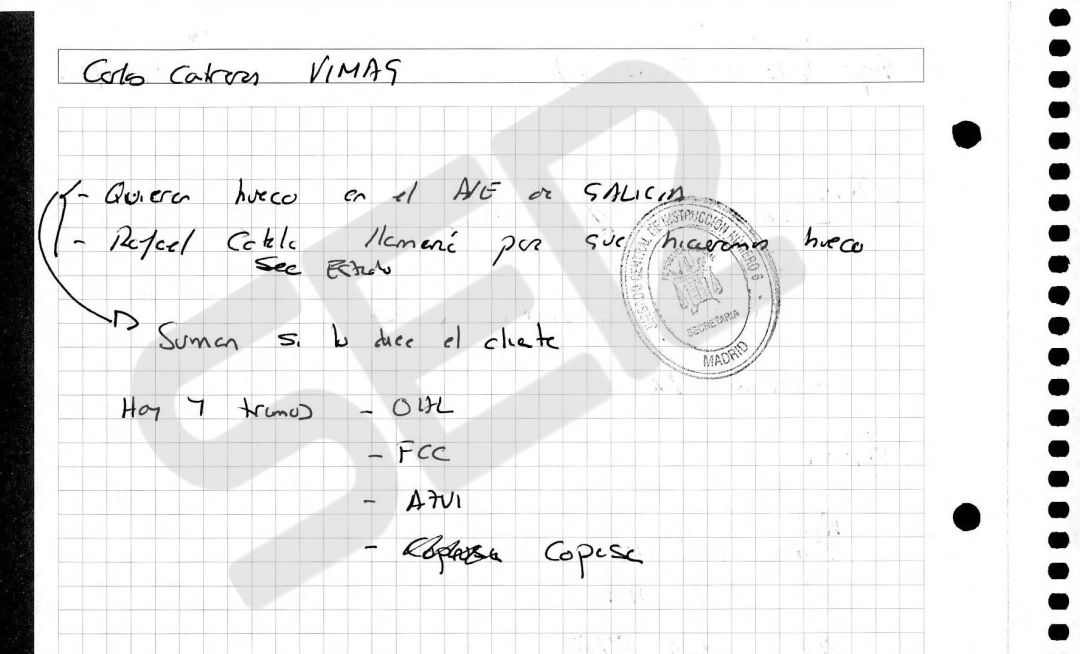 Carlos Cabreras VIMAG
- Quieren hueco en el AVE de GALICIA
- Rafael Catala llamará para que hicieramos hueco
Sec Estado
Suman si lo dice el cliente
Hay 4 tramos - OHL
- FCC
- AZVI
- Copasa
JUZGADO CENTRAL DE INSTRUCCIÓN NUMERO 6
SECRETARIA
MADRID
SER